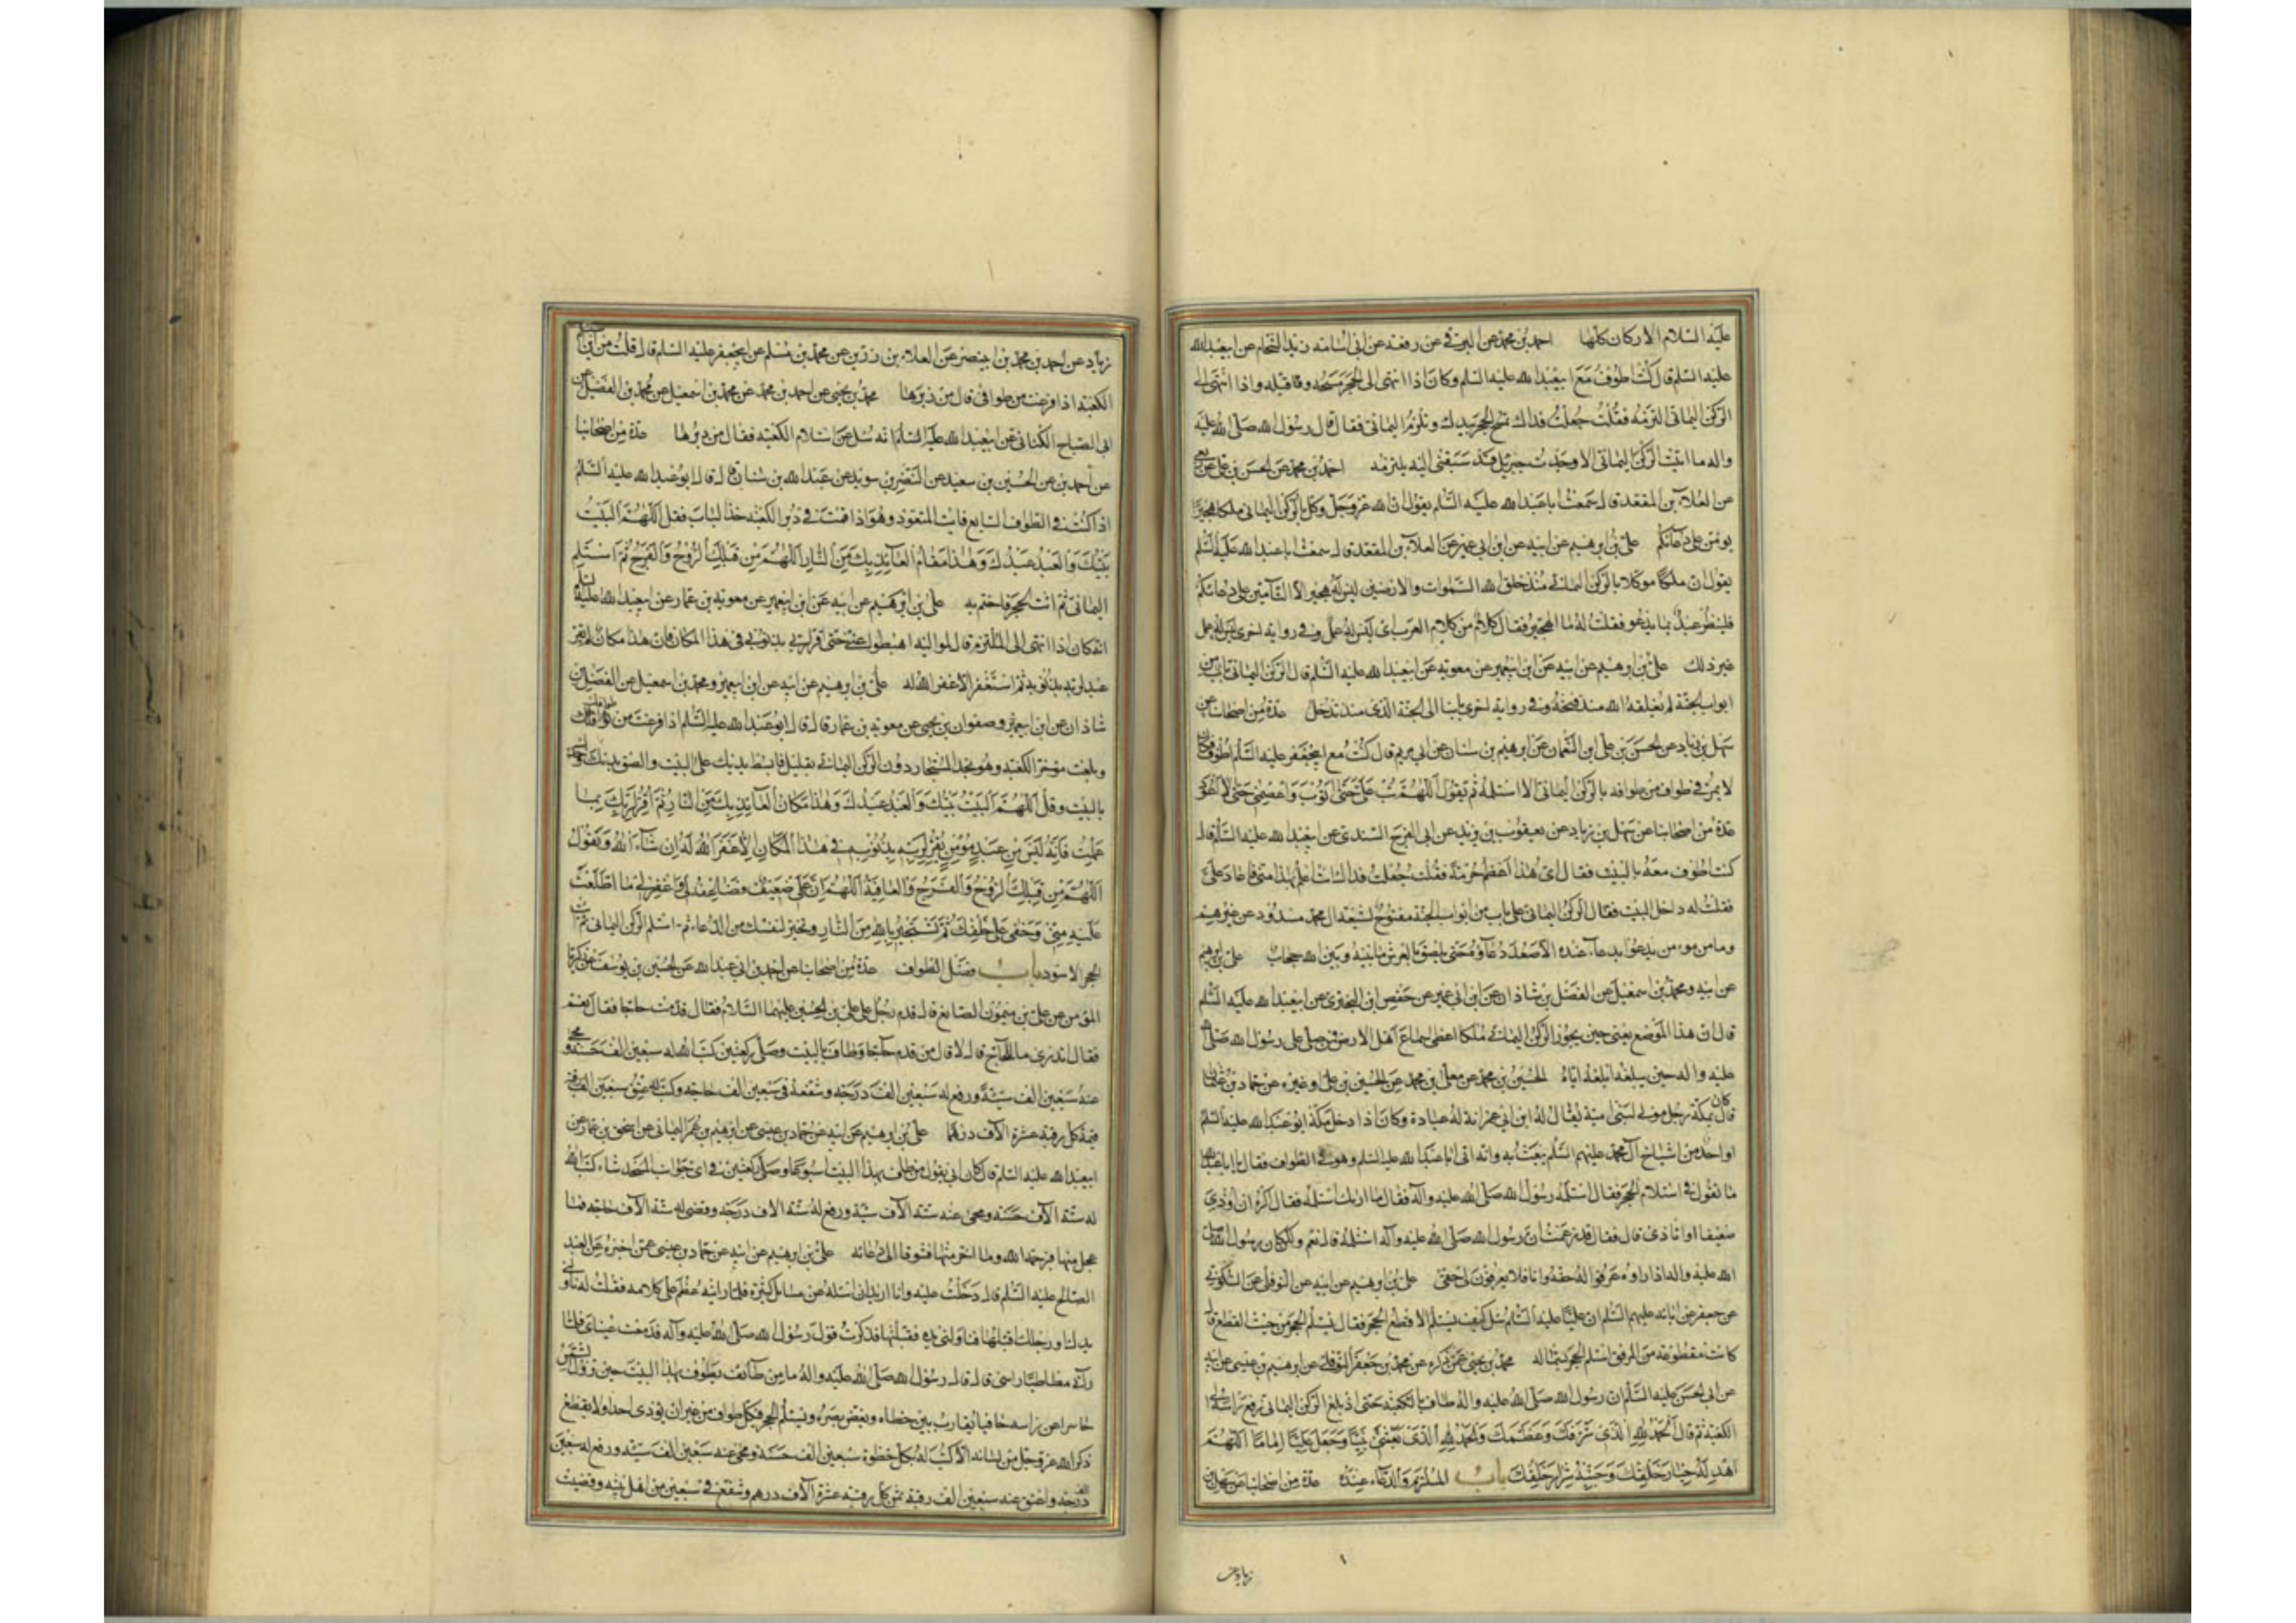 عليه السلام الاركان كلها احمد بن محمد عن البرقي عن رفعه عن ابي اسامه زيد الشحام عن ابيعبد الله
عليه السلم قال كنت اطوف مع ابيعبد الله عليه السلم وكان اذا انتهى الى الحجر مسحه وقبله واذا انتهى الى
الركن اليماني التزمه فقلت جعلت فداك تمسح الحجر بيدك وتلزم اليماني فقال قال رسول الله صلى الله عليه
واله ما اتيت الركن اليماني الا وجدت جبرئيل قد سبقني اليه يلتزمه احمد بن محمد عن الحسن بن علي عن ربعي
عن العلاء بن المقعد قال سمعت ابا عبد الله عليه السلم يقول ان الله عز وجل وكل بالركن اليماني ملكا هجيرا
يؤمن على دعائكم علي بن ابرهيم عن ابيه عن ابن ابي عمير عن العلاء بن المقعد قال سمعت ابا عبد الله عليه السلم
يقول ان ملكا موكلا بالركن اليماني منذ خلق الله السموات والارضين ليس له هجير الا التامين على دعائكم
فلينظر عبد بما يدعو فقلت له ما الهجير فقال كلام من كلام العرب اى ليس له عمل وفي رواية اخرى ليس له عمل
غير ذلك علي بن ابرهيم عن ابيه عن ابن ابيعمير عن معويه عن ابيعبد الله عليه السلم قال الركن اليماني باب من
ابواب الجنة لم يغلقه الله منذ فتحه وفي رواية اخرى بابنا الى الجنة الذى منه ندخل عدة من اصحابنا عن
سهل بن زياد عن الحسن بن علي ابن النعمان عن ابرهيم بن سنان عن ابي مريم قال كنت مع ابيجعفر عليه السلم اطوف وكان
لا يمر في طواف من طوافه بالركن اليماني الا استلمه ثم يقول اللهم تب على حتى اتوب واعصمني حتى لا اعود
عدة من اصحابنا عن سهل بن زياد عن يعقوب بن يزيد عن ابي الفرج السندى عن ابيعبد الله عليه السلم قال
كنت اطوف معه بالبيت فقال اى هذا اعظم حرمة فقلت جعلت فداك انت اعلم بهذا مني فاعاد على
فقلت له داخل البيت فقال الركن اليماني على باب من ابواب الجنة مفتوح لشيعة ال محمد مسدود عن غيرهم
وما من مومن يدعو بدعاء عنده الا صعد دعاؤه حتى يلصق بالعرش ما بينه وبين الله حجاب علي بن ابرهيم
عن ابيه ومحمد بن اسمعيل عن الفضل بن شاذان عن ابن ابي عمير عن حفص ابن البخترى عن ابيعبد الله عليه السلم
قال ان في هذا الموضع يعني حين يجوز الركن اليماني ملكا اعطى سماع اهل الارض فمن صلى على رسول الله صلى الله
عليه واله حين يبلغه ابلغه اياه الحسين بن محمد عن معلى بن محمد عن الحسين بن علي وغيره عن حماد بن عثمان
قال كان بمكة رجل مولى لبني امية يقال له ابن ابي عوانة له عبادة وكان اذا دخل مكة ابو عبد الله عليه السلم
او احد من اشياخ آل محمد عليهم السلم يعبث به وانه اتى ابا عبد الله عليه السلم وهو في الطواف فقال يا ابا عبد الله
ما تقول في استلام الحجر فقال استلمه رسول الله صلى الله عليه وآله فقال ما اراك استلمته فقال اكره ان اوذى
ضعيفا او اتاذى قال فقال قد زعمت ان رسول الله صلى الله عليه وآله استلمه قال نعم ولكن كان رسول الله صلى
الله عليه واله اذا راوه عرفوا له حقه وانا فلا يعرفون لي حقي علي بن ابرهيم عن ابيه عن النوفلي عن السكوني
عن جعفر عن ابائه عليهم السلم ان عليا عليه السلم سئل كيف يستلم الاقطع الحجر فقال يستلم الحجر من حيث القطع فان
كانت مقطوعة من المرفق استلم الحجر بشماله محمد بن يحيى عمن ذكره عن محمد بن جعفر النوفلي عن ابرهيم بن عيسى عن ابيه
عن ابي الحسن عليه السلم ان رسول الله صلى الله عليه واله طاف بالكعبة حتى اذ بلغ الركن اليماني رفع راسه الى
الكعبة ثم قال الحمد لله الذى شرفك وعظمك والحمد لله الذى بعثني نبيا وجعل عليا اماما اللهم
اهد له خيار خلقك وجنبه شرار خلقك باب الملتزم والدعاء عنده عدة من اصحابنا عن سهل بن
زياد عن
زياد عن احمد بن محمد بن ابينصر عن العلاء بن رزين عن محمد بن مسلم عن ابيجعفر عليه السلم قال قلت من اين استلم
الكعبة اذا فرغت من طوافي قال من دبرها محمد بن يحيى عن احمد بن محمد عن محمد بن اسمعيل عن محمد بن الفضيل عن
ابي الصباح الكناني عن ابيعبد الله عليه السلم انه سئل عن استلام الكعبة فقال من دبرها عدة من اصحابنا
عن احمد بن عن الحسين بن سعيد عن النضر بن سويد عن عبد الله بن سنان قال قال ابو عبد الله عليه السلم
اذا كنت في الطواف السابع فايت المتعوذ وهو اذا قمت في دبر الكعبة حذا الباب فقل اللهم البيت
بيتك والعبد عبدك وهذا مقام العائذ بك من النار اللهم من قبلك الروح والفرج ثم استلم
اليماني ثم ائت الحجر فاختم به علي بن ابرهيم عن ابيه عن ابن ابيعمير عن معويه بن عمار عن ابيعبد الله عليه السلم
انه كان اذا انتهى الى الملتزم قال لمواليه اميطوا عني حتى اقر لربي بذنوبي في هذا المكان فان هذا مكان لم يقر
عبد لربه بذنوبه ثم استغفر الا غفر الله له علي بن ابرهيم عن ابيه عن ابن ابيعمير ومحمد بن اسمعيل عن الفضل بن
شاذان عن ابن ابيعمير وصفوان بن يحيى عن معويه بن عمار قال قال ابو عبد الله عليه السلم اذا فرغت من طوافك
وبلغت موخر الكعبة وهو بحذا المستجار دون الركن اليماني بقليل فابسط يديك على البيت والصق بدنك وخدك
بالبيت وقل اللهم البيت بيتك والعبد عبدك وهذا مكان العائذ بك من النار ثم اقر لربك بما
عملت فانه ليس من عبد مؤمن يقر لربه بذنوبه في هذا المكان الا غفر الله له ان شاء الله وتقول
اللهم من قبلك الروح والفرج والعافية اللهم ان عملى ضعيف فضاعفه لى واغفر لى ما اطلعت
عليه مني وخفى على خلقك ثم تستجير بالله من النار وتخير لنفسك من الدعاء ثم استلم الركن اليماني ثم ائت
الحجر الاسود باب فضل الطواف عدة من اصحابنا عن احمد بن ابي عبد الله عن الحسين بن يوسف عن زكريا
المؤمن عن علي بن ميمون الصايغ قال قدم رجل على علي بن الحسين عليهما السلام فقال قدمت حاجا فقال نعم
فقال اتدرى ما للحاج قال لا قال من قدم حاجا وطاف بالبيت وصلى ركعتين كتب الله له سبعين الف حسنة ومحى
عنه سبعين الف سيئة ورفع له سبعين الف درجة وشفعه في سبعين الف حاجة وكتب له عتق سبعين الف رقبة
قيمة كل رقبة عشرة الآف درهم علي بن ابرهيم عن ابيه عن حماد بن عيسى عن ابرهيم بن عمر اليماني عن اسحق بن عمار عن
ابيعبد الله عليه السلم قال كان ابي يقول من طاف بهذا البيت اسبوعا وصلى ركعتين في اى جوانب المسجد شاء كتب الله
له ستة الآف حسنة ومحى عنه ستة الآف سيئة ورفع له ستة الاف درجة وقضى له ستة الآف حاجة فما
عجل منها فبرحمة الله وما اخر منها فشوقا الى دعائه علي بن ابرهيم عن ابيه عن حماد بن عيسى عمن اخبره عن العبد
الصالح عليه السلم قال دخلت عليه وانا اريد ان اسئله عن مسائل كثيرة فلما رايته عظم على كلامه فقلت له ناولني
يدك او رجلك اقبلها فناولني يده فقبلتها فذكرت قول رسول الله صلى الله عليه وآله فدمعت عيناى فلما
رآني مطاطئا راسى قال قال رسول الله صلى الله عليه واله ما من طائف يطوف بهذا البيت حين تزول الشمس
حاسرا عن راسه حافيا يقارب بين خطاه ويغض بصره ويستلم الحجر في كل طواف من غير ان يؤذى احدا ولا يقطع
ذكر الله عز وجل من لسانه الا كتب له بكل خطوة سبعين الف حسنة ومحى عنه سبعين الف سيئة ورفع له سبعين
الف درجة واعتق عنه سبعين الف رقبة ثمن كل رقبة عشرة الآف درهم وشفع في سبعين من اهل بيته وقضيت